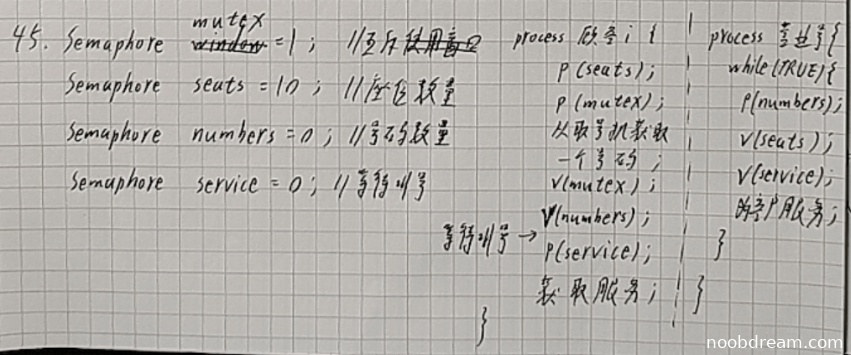 45. Semaphore mutex =1; //互斥
Semaphore seats =10; //座位数量
Semaphore numbers =0; //号码数量
Semaphore service =0; //等待叫号
process 顾客i {
P(seats);
P(mutex);
从取号机获取
一个号码;
V(mutex);
V(numbers);
等待叫号→ P(service);
获取服务;
}
process 营业员{
while(TRUE){
P(numbers);
V(seats);
V(service);
为客户服务;
}
}
noobdream.com